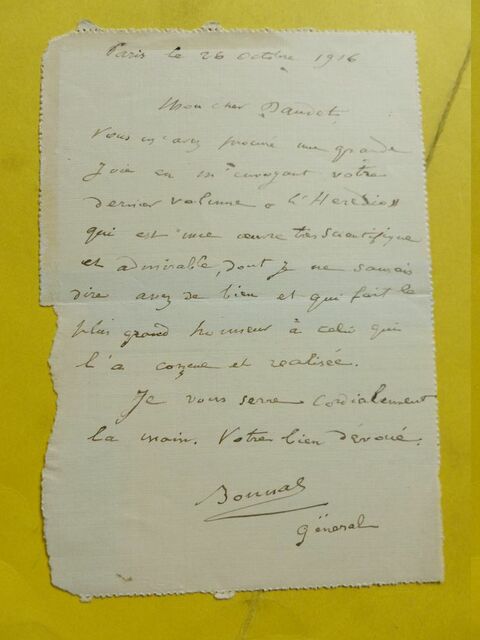 Paris le 26 Octobre 1916
Mon cher Daudet,
Vous m'avez procuré une grande
Joie en m'envoyant votre
dernier volume « l'Heredo »
qui est une œuvre très scientifique
et admirable, dont je ne saurais
dire assez de bien et qui fait le
plus grand honneur à celui qui
l'a conçue et realisée.
Je vous serre Cordialement
la main. Votre bien dévoué.
Bonnal
Général